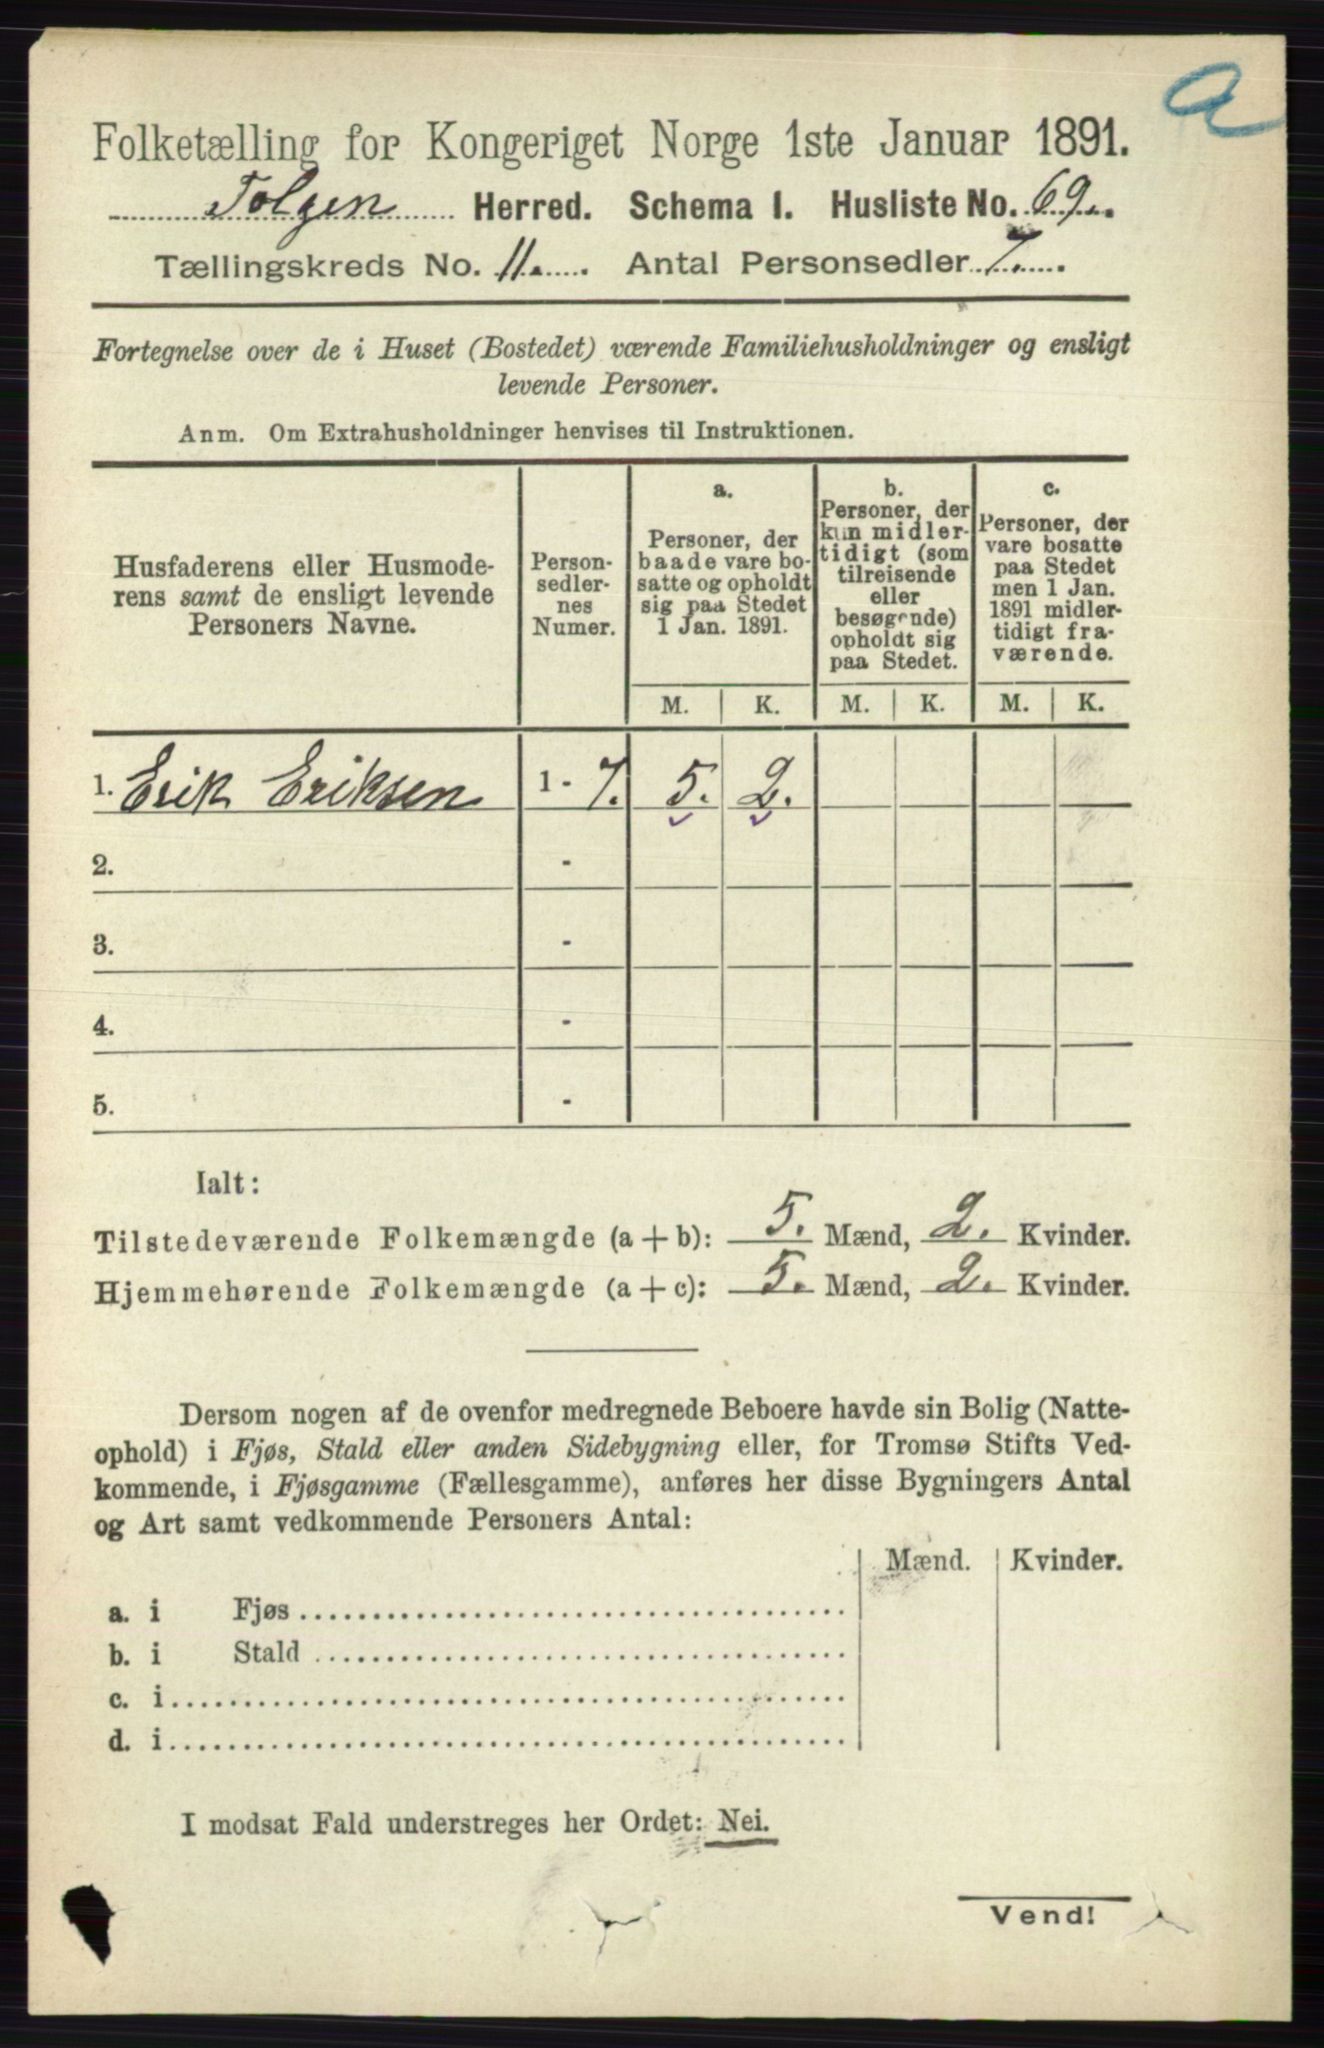 a
Folketælling for Kongeriget Norge 1ste Januar 1891.
Tolgen Herred. Schema I. Husliste No. 69.
Tællingskreds No. 11. Antal Personsedler 7.
Fortegnelse over de i Huset (Bostedet) værende Familiehusholdninger og ensligt
levende Personer.
Anm. Om Extrahusholdninger henvises til Instruktionen.
Husfaderens eller Husmode-
rens samt de ensligt levende
Personers Navne.
Person-
sedler-
nes
Numer.
a.
Personer, der
baade vare bo-
satte og opholdt
sig paa Stedet
1 Jan. 1891.
b.
Personer, der
kun midler-
tidigt (som
tilreisende
eller
besøgende)
opholdt sig
paa Stedet.
c.
Personer, der
vare bosatte
paa Stedet
men 1 Jan.
1891 midler-
tidigt fra-
værende.
M. K. M. K. M. K.
1. Erik Eriksen 1 - 7. 5. 2.
2. -
3. -
4. -
5. -
Ialt:
Tilstedeværende Folkemængde (a + b): 5. Mænd, 2. Kvinder.
Hjemmehørende Folkemængde (a + c): 5. Mænd, 2. Kvinder.
Dersom nogen af de ovenfor medregnede Beboere havde sin Bolig (Natte-
ophold) i Fjøs, Stald eller anden Sidebygning eller, for Tromsø Stifts Ved-
kommende, i Fjøsgamme (Fællesgamme), anføres her disse Bygningers Antal
og Art samt vedkommende Personers Antal:
Mænd. Kvinder.
a. i Fjøs
b. i Stald
c. i
d. i
I modsat Fald understreges her Ordet: Nei.
Vend!